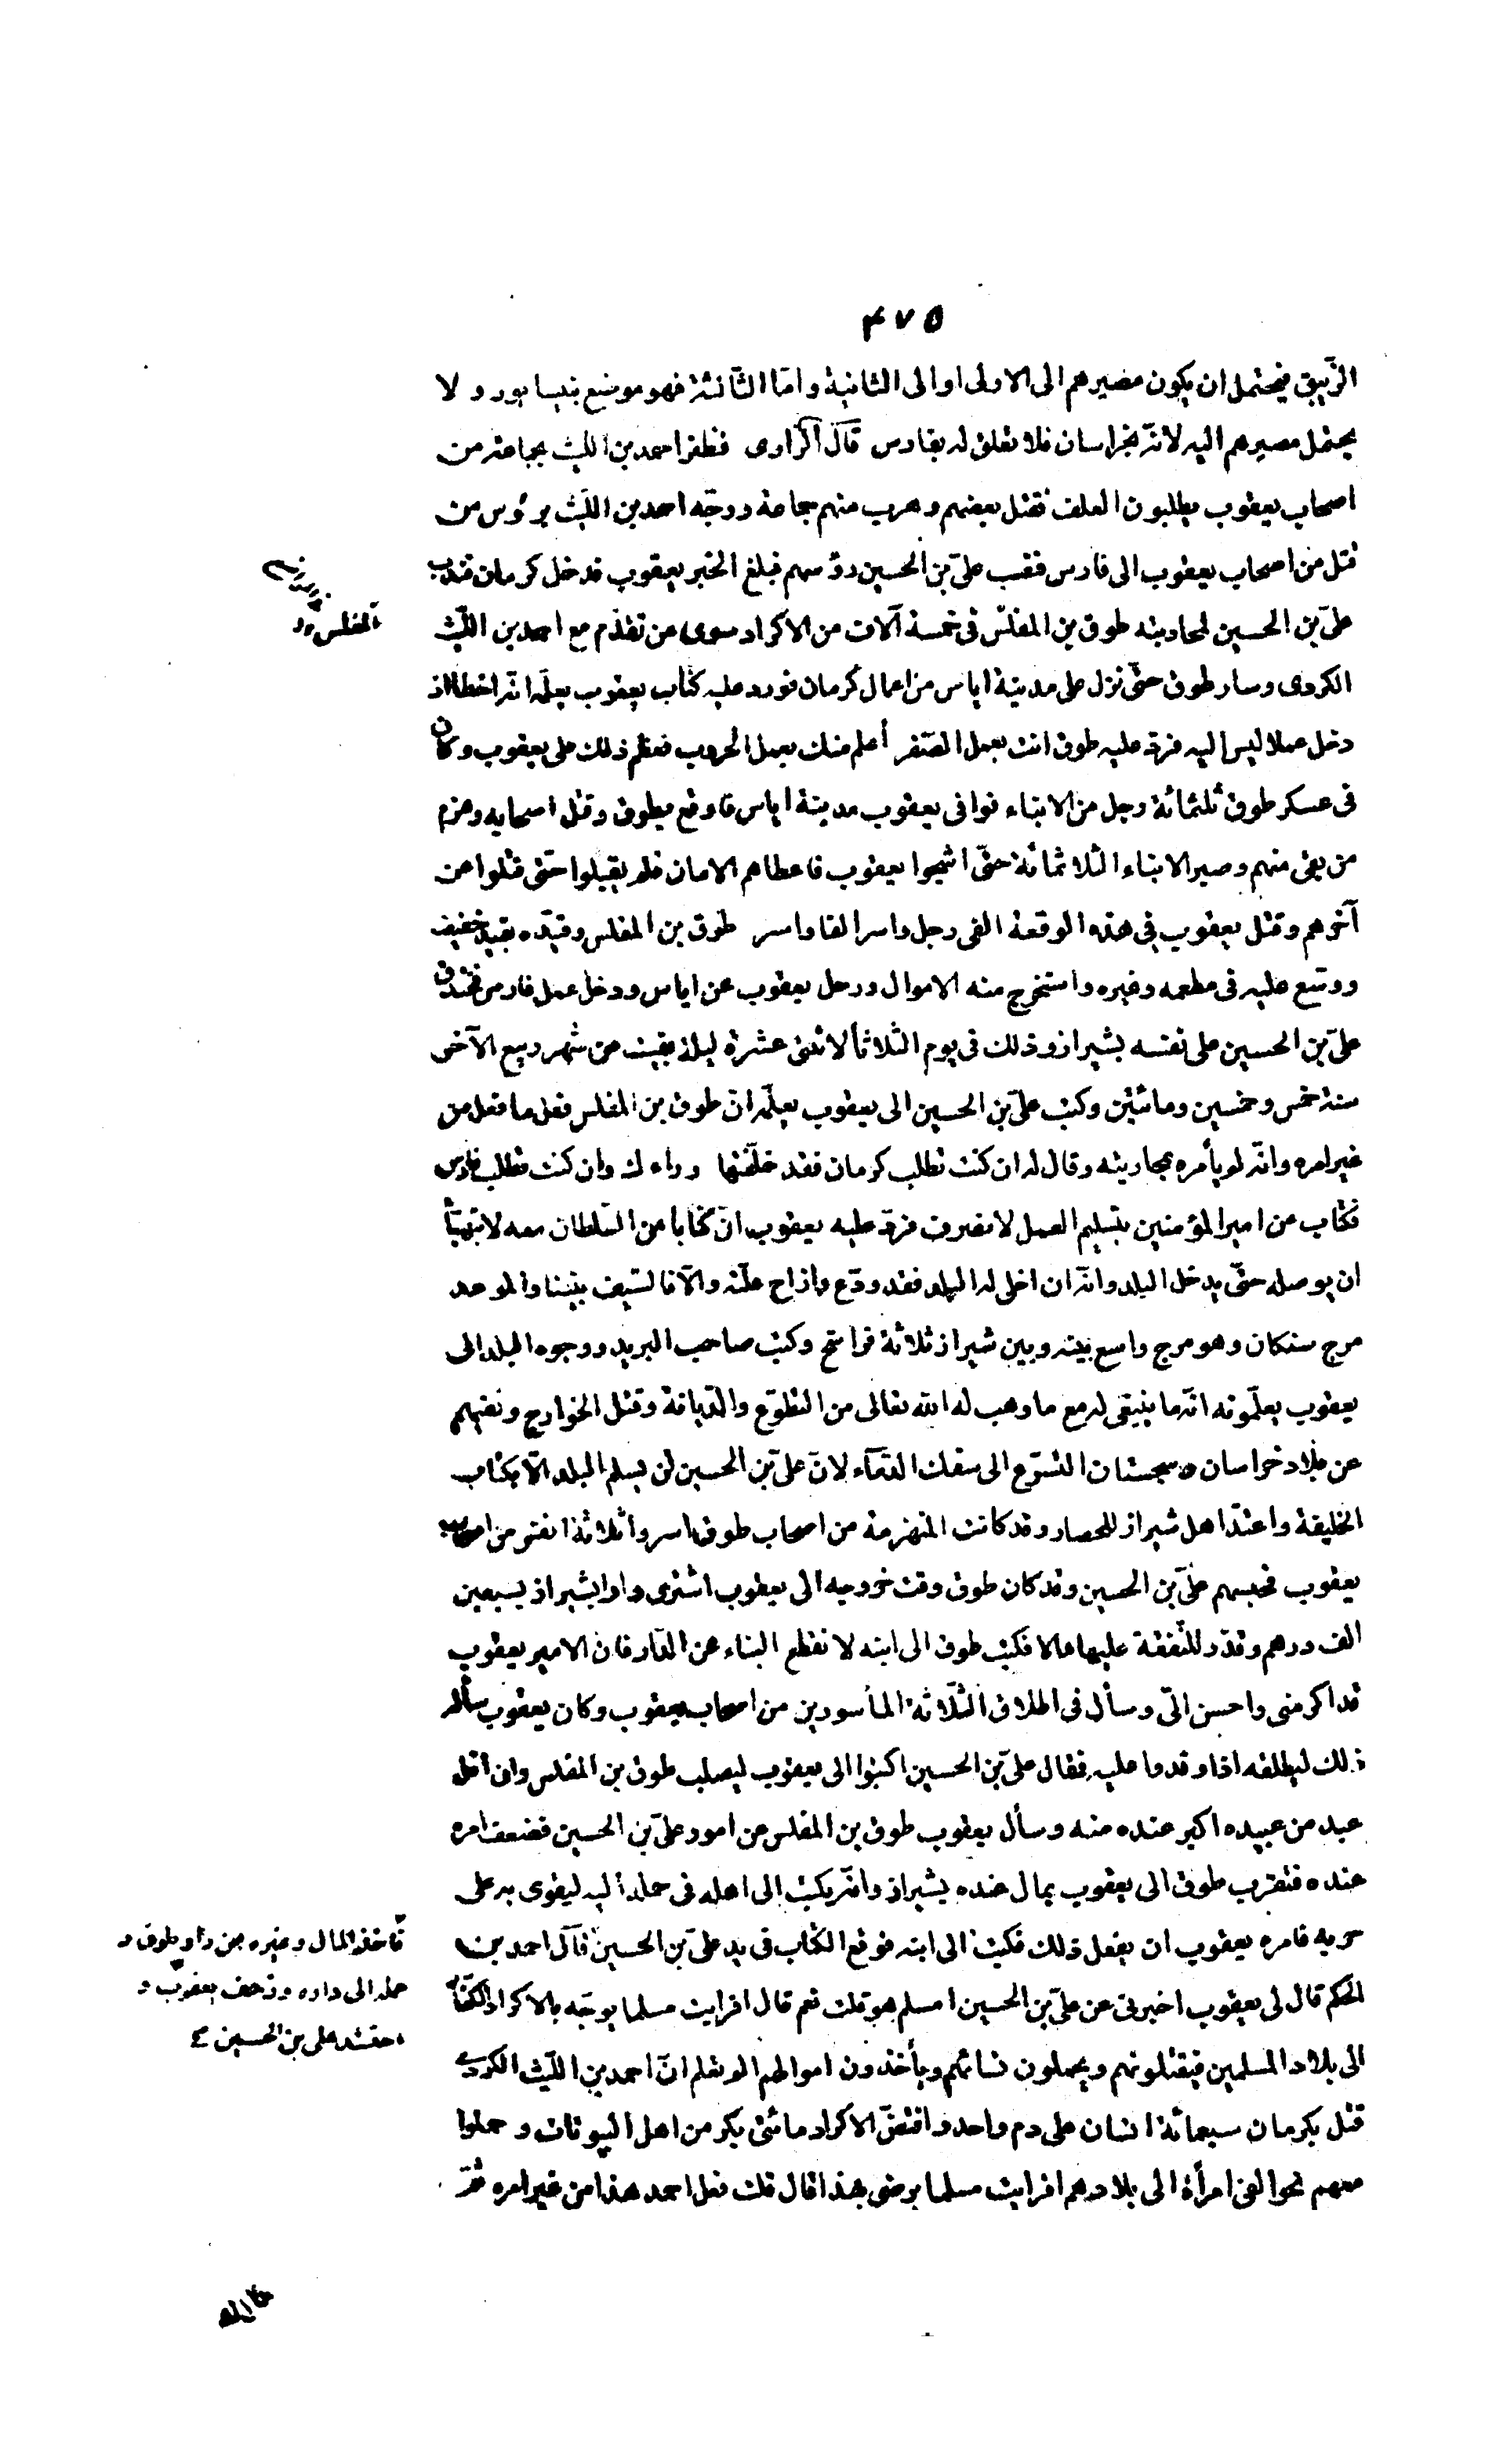 ٤٧٥
الزّيبق فيحتمل ان يكون مصيرهم الى الاولى او الى الثانية وامّا الثّالثة فهو موضع بنيسابور ولا
يحتمل مصيرهم اليه لانّه بخراسان فلا تعلق له بفارس قال الرّاوى فظفر احمد بن اللّيث بجماعة من
اصحاب يعقوب يطلبون العلف فقتل بعضهم وهرب منهم جماعة ووجّه احمد بن اللّيث برئوس من
قتل من اصحاب يعقوب الى فارس فنصب علىّ بن الحسين رؤسهم فبلغ الخبر يعقوب فدخل كرمان فندب
علىّ بن الحسين لمحاربته طوق بن المغلّس فى خمسة آلاف من الاكراد سوى من تقدّم مع احمد بن اللّيث
الكردى وسار طوق حتّى نزل على مدينة اياس من اعمال كرمان فورد عليه كتاب يعقوب يعلّمه انّه اخطأ اذ
دخل عملا ليس اليه فردّ عليه طوق انت بعمل الصّفر أعلم منك بعمل الحروب فعظم ذلك على يعقوب وكان
فى عسكر طوق ثلثمائة رجل من الابناء فوافى يعقوب مدينة اياس فاوقع بطوق وقتل اصحابه وهزم
من بقى منهم وصبر الابناء الثلاثمائة حتّى اشجوا يعقوب فاعطاهم الامان فلم يقبلوا حتّى قتلوا عن
آخرهم وقتل يعقوب فى هذه الوقعة الفى رجل واسر الفا واسر طوق بن المغلس وقيّده بقيد خفيف
ووسّع عليه فى مطعمه وغيره واستخرج منه الاموال ورحل يعقوب عن اياس ودخل عمل فارس فخندق
علىّ بن الحسين على نفسه بشيراز وذلك فى يوم الثلاثا لاثنتى عشرة ليلة بقيت من شهر ربيع الآخر
سنة خمس وخمسين ومائتين وكتب علىّ بن الحسين الى يعقوب يعلّمه انّ طوق بن المغلس فعل ما فعل من
غير امره وانّه لم يأمره بمحاربته وقال له ان كنت تطلب كرمان فقد خلّفتها وراءك وان كنت تطلب فارس
فكتاب من امير المؤمنين بتسليم العمل لانصرف فردّ عليه يعقوب انّ كتابا من السّلطان معه لا يتهيّأ
ان يوصله حتّى يدخل البلد وانّه ان اخلى له البلد فقد ودّع وازاح علّته والّا فالسّيف بيننا والموعد
مرج سنكان وهو مرج واسع بينه وبين شيراز ثلاثة فراسخ وكتب صاحب البريد ووجوه البلد الى
يعقوب يعلّمونه انّه ما ينبغى له مع ما وهب له الله تعالى من التطوّع والدّيانة وقتل الخوارج ونفيهم
عن بلاد خراسان وسجستان التسرّع الى سفك الدّمآء لانّ علىّ بن الحسين لن يسلم البلد الّا بكتاب
الخليفة واعتدّ اهل شيراز للحصار وقد كانت المنهزمة من اصحاب طوق اسروا ثلاثة انفس من اصحاب
يعقوب فحبسهم علىّ بن الحسين وقد كان طوق وقت خروجه الى يعقوب اشترى دارا بشيراز بسبعين
الف درهم وقدّر للنّفقة عليها مالا فكتب طوق الى ابنه لا تقطع البناء عن الدّار فان الامير يعقوب
قد اكرمنى واحسن الىّ وسأل فى اطلاق الثّلاثة المأسورين من اصحاب يعقوب وكان يعقوب سأله
ذلك ليطلقه اذا وقدوا عليه فقال علىّ بن الحسين اكتبوا الى يعقوب ليصلب طوق بن المغلس وان اقل
عبد من عبيده اكبر عنده منه وسأل يعقوب طوق بن المغلس عن امور علىّ بن الحسين فضعف امره
عنده فتقرب طوق الى يعقوب بمال عنده بشيراز وانّه يكتب الى اهله فى حمله اليه ليقوى به على
حربه فامره يعقوب ان يفعل ذلك فكتب الى ابنه فوقع الكتاب فى يد علىّ بن الحسين قال احمد بن
الحكم قال لى يعقوب اخبرنى عن علىّ بن الحسين امسلم هو قلت نعم قال افرايت مسلما يوجّه بالاكراد الكفّار
الى بلاد المسلمين فيقتلونهم ويحملون نسائهم ويأخذون اموالهم الم تعلم انّ احمد بن اللّيث الكردى
قتل بكرمان سبعمائة انسان على دم واحد وافتضّ الاكراد مائتى بكر من اهل البيوتات وحملوا
معهم نحو الفى امرأة الى بلادهم افرايت مسلما يرضى بهذا قال قلت فعل احمد هذا من غير امره ثمّ
المغلس
فاخذ المال وغيره من دار طوق و
حمله الى داره وزحف يعقوب و
احتشد على بن الحسين